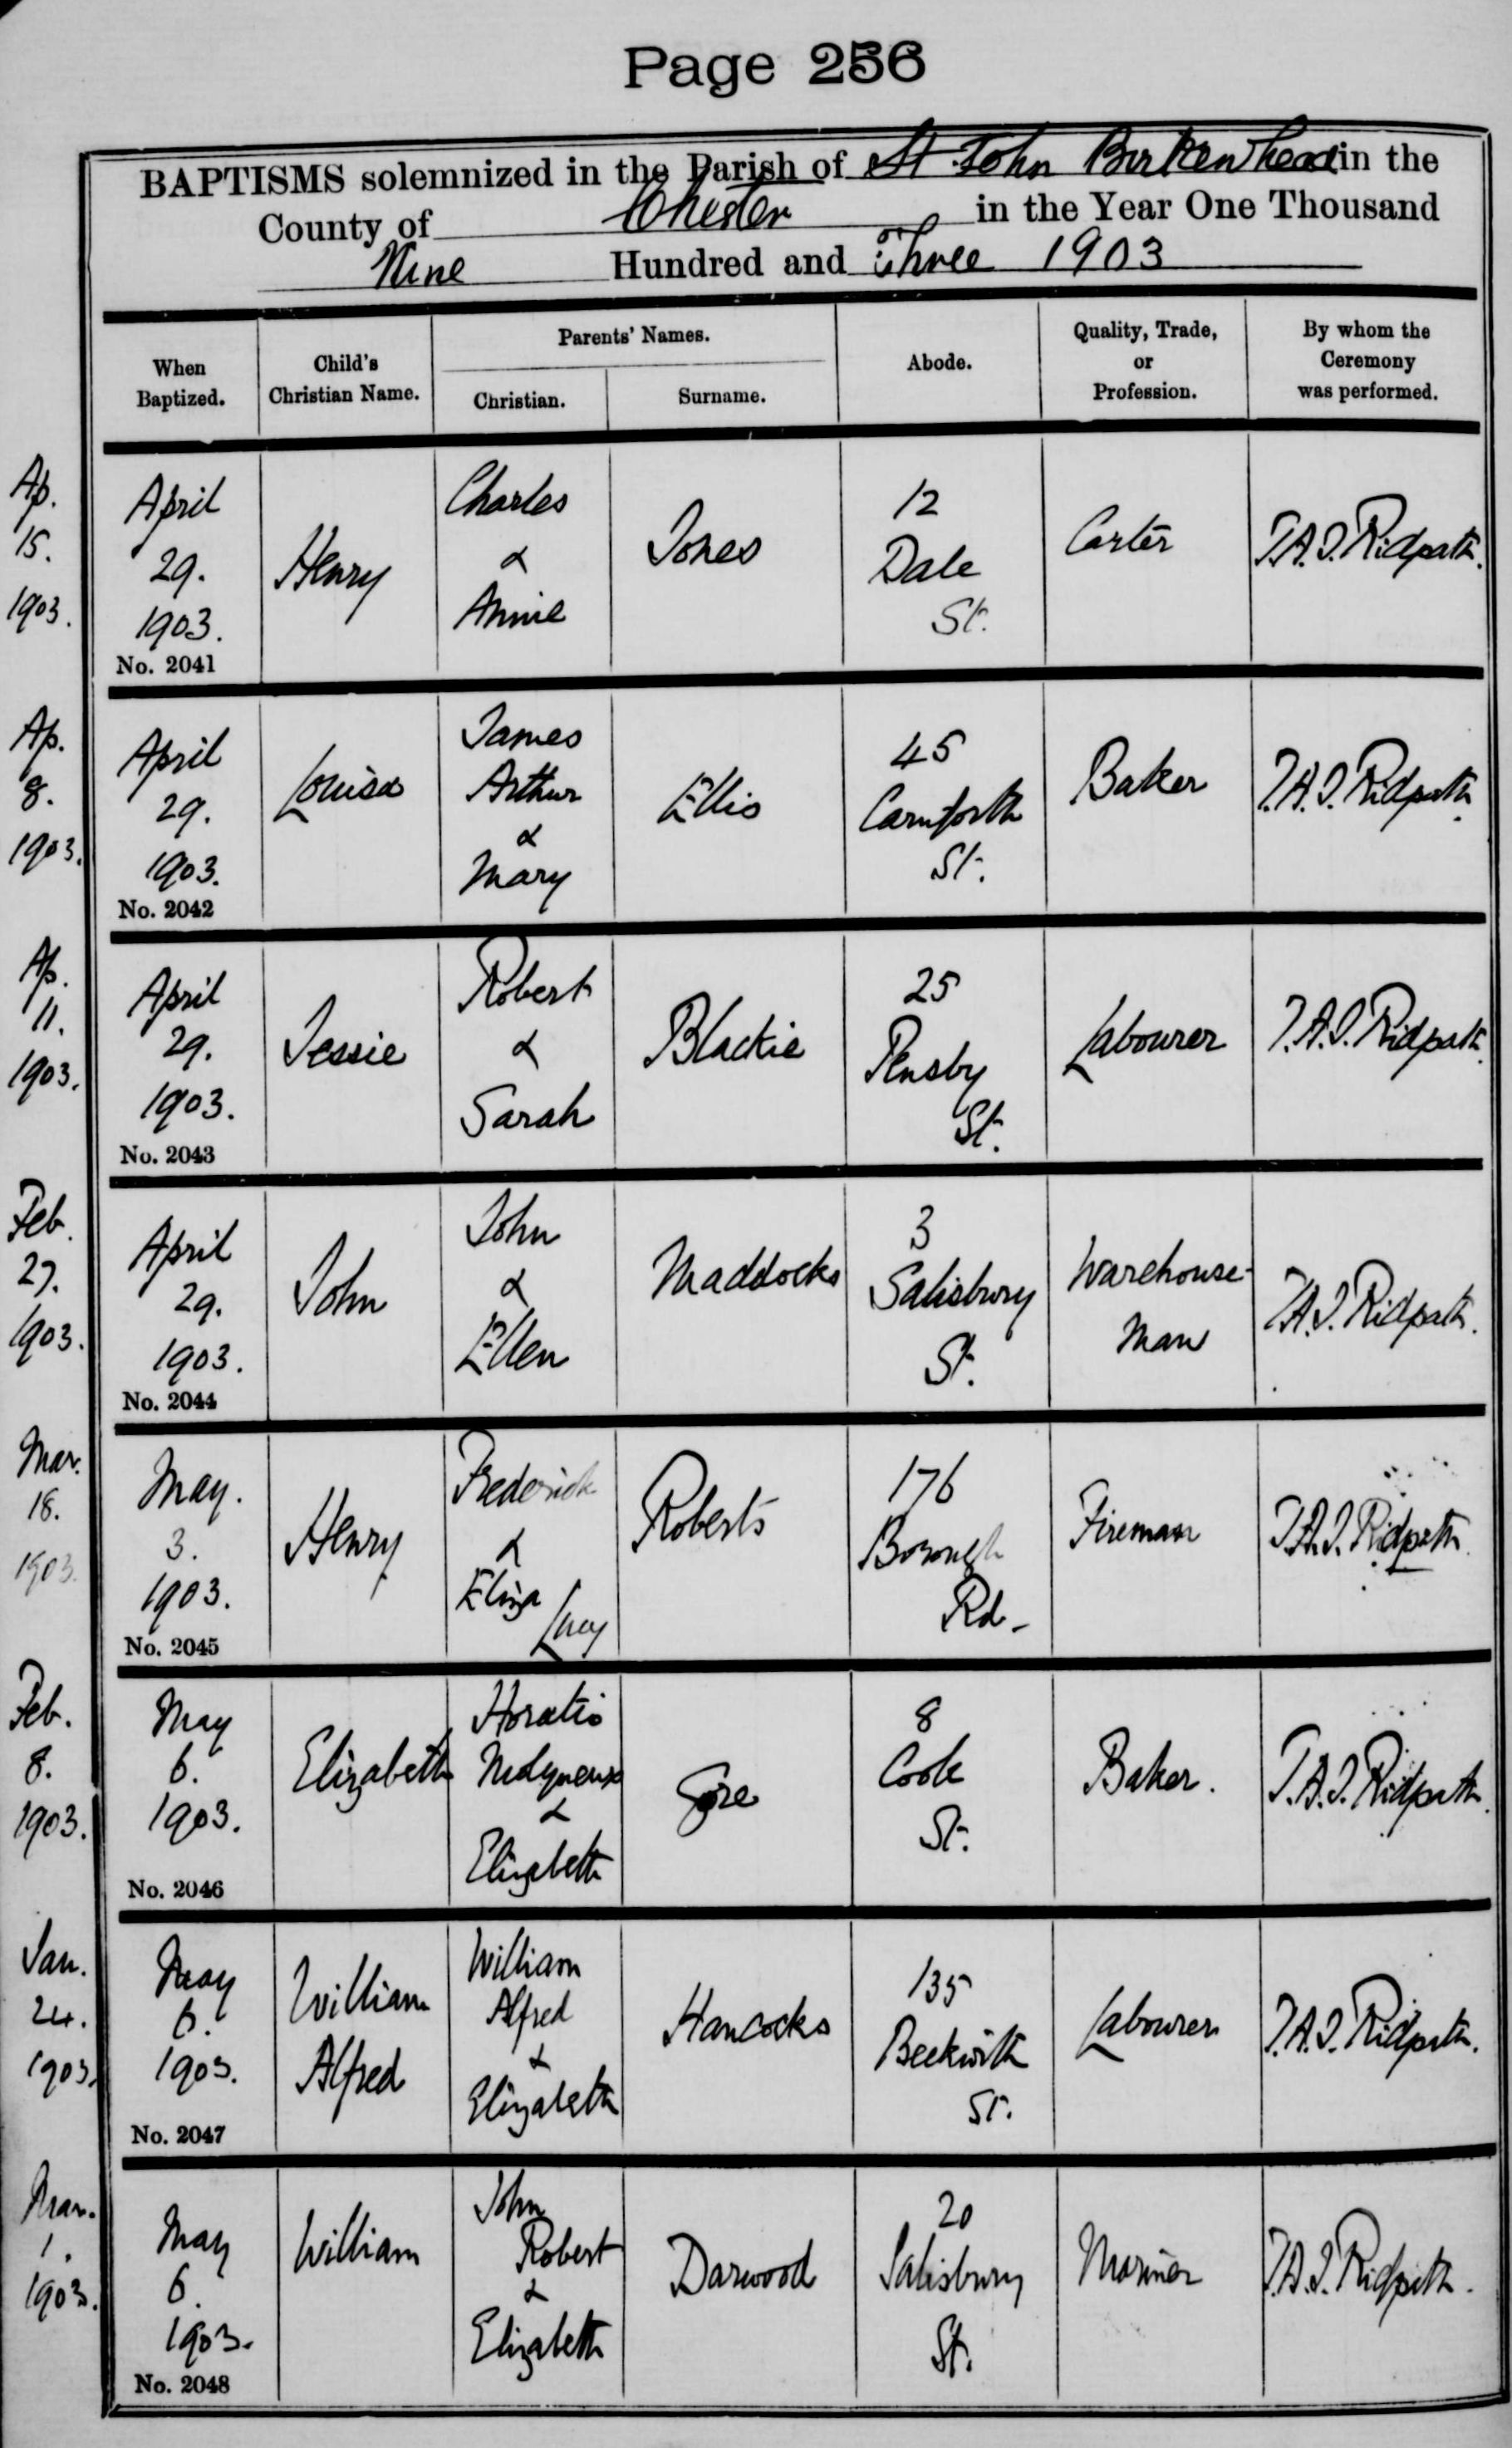 Page 256
BAPTISMS solemnized in the Parish of St John Birkenhead in the
County of Chester in the Year One Thousand
Nine Hundred and Three 1903
When Baptized.
Child's Christian Name.
Parents' Names.
Christian.
Surname.
Abode.
Quality, Trade, or Profession.
By whom the Ceremony was performed.
Ap. 15. 1903.
April 29. 1903.
No. 2041
Henry
Charles & Annie
Jones
12 Dale St.
Carter
T.A.I. Ridpath.
Ap. 8. 1903.
April 29. 1903.
No. 2042
Louisa
James Arthur & Mary
Ellis
45 Carnforth St.
Baker
T.A.I. Ridpath.
Ap. 11. 1903.
April 29. 1903.
No. 2043
Jessie
Robert & Sarah
Blackie
25 Pensby St.
Labourer
T.A.I. Ridpath.
Feb. 27. 1903.
April 29. 1903.
No. 2044
John
John & Ellen
Maddocks
3 Salisbury St.
Warehouse-Man
T.A.I. Ridpath.
Mar. 18. 1903.
May. 3. 1903.
No. 2045
Henry
Frederick & Eliza Lucy
Roberts
176 Borough Rd.
Fireman
T.A.I. Ridpath.
Feb. 8. 1903.
May 6. 1903.
No. 2046
Elizabeth
Horatio Molyneux & Elizabeth
Gore
8 Cook St.
Baker.
T.A.I. Ridpath.
Jan. 24. 1903.
May 6. 1903.
No. 2047
William Alfred
William Alfred & Elizabeth
Hancocks
135 Beckwith St.
Labourer
T.A.I. Ridpath.
Mar. 1. 1903.
May 6. 1903.
No. 2048
William
John Robert & Elizabeth
Darwood
20 Salisbury St.
Mariner
T.A.I. Ridpath.